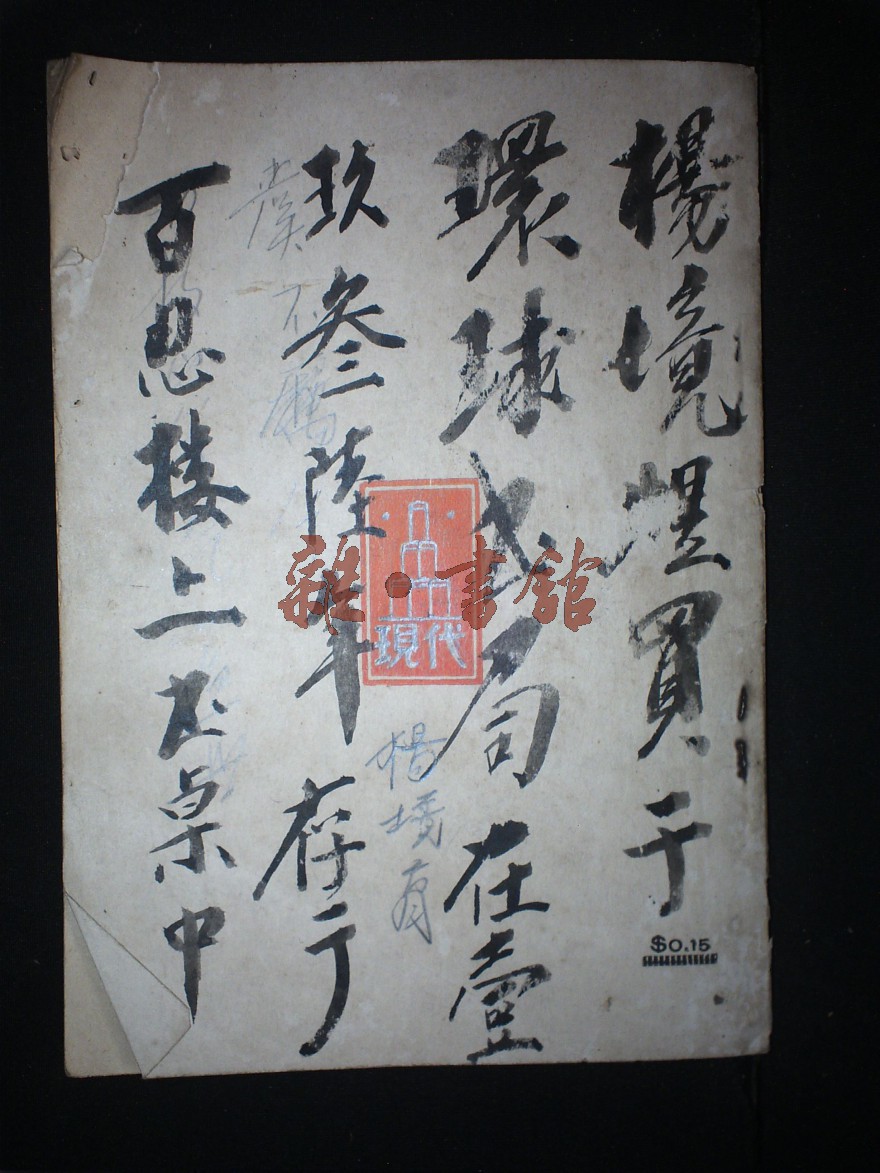 楊境堃買于
環球書局在壹
玖叁陸年存于
百忍楼上书桌中
楊境有
現代
雜·書館
$0.15